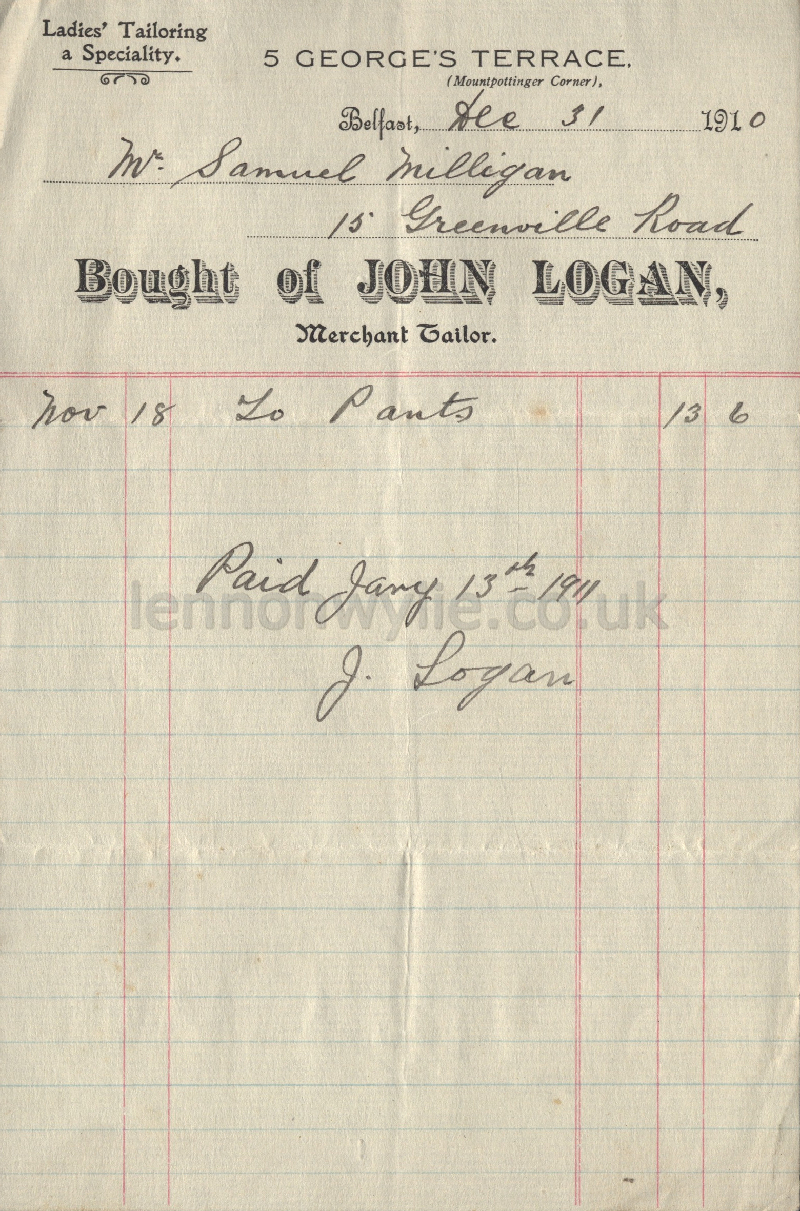 Ladies' Tailoring
a Speciality.
5 GEORGE'S TERRACE,
(Mountpottinger Corner),
Belfast, Dec 31 1910
Mr. Samuel Milligan
15 Greenville Road
Bought of JOHN LOGAN,
Merchant Tailor.
Nov 18 To Pants 13 6
Paid Jany 13th 1911
lennonwylie.co.uk
J. Logan